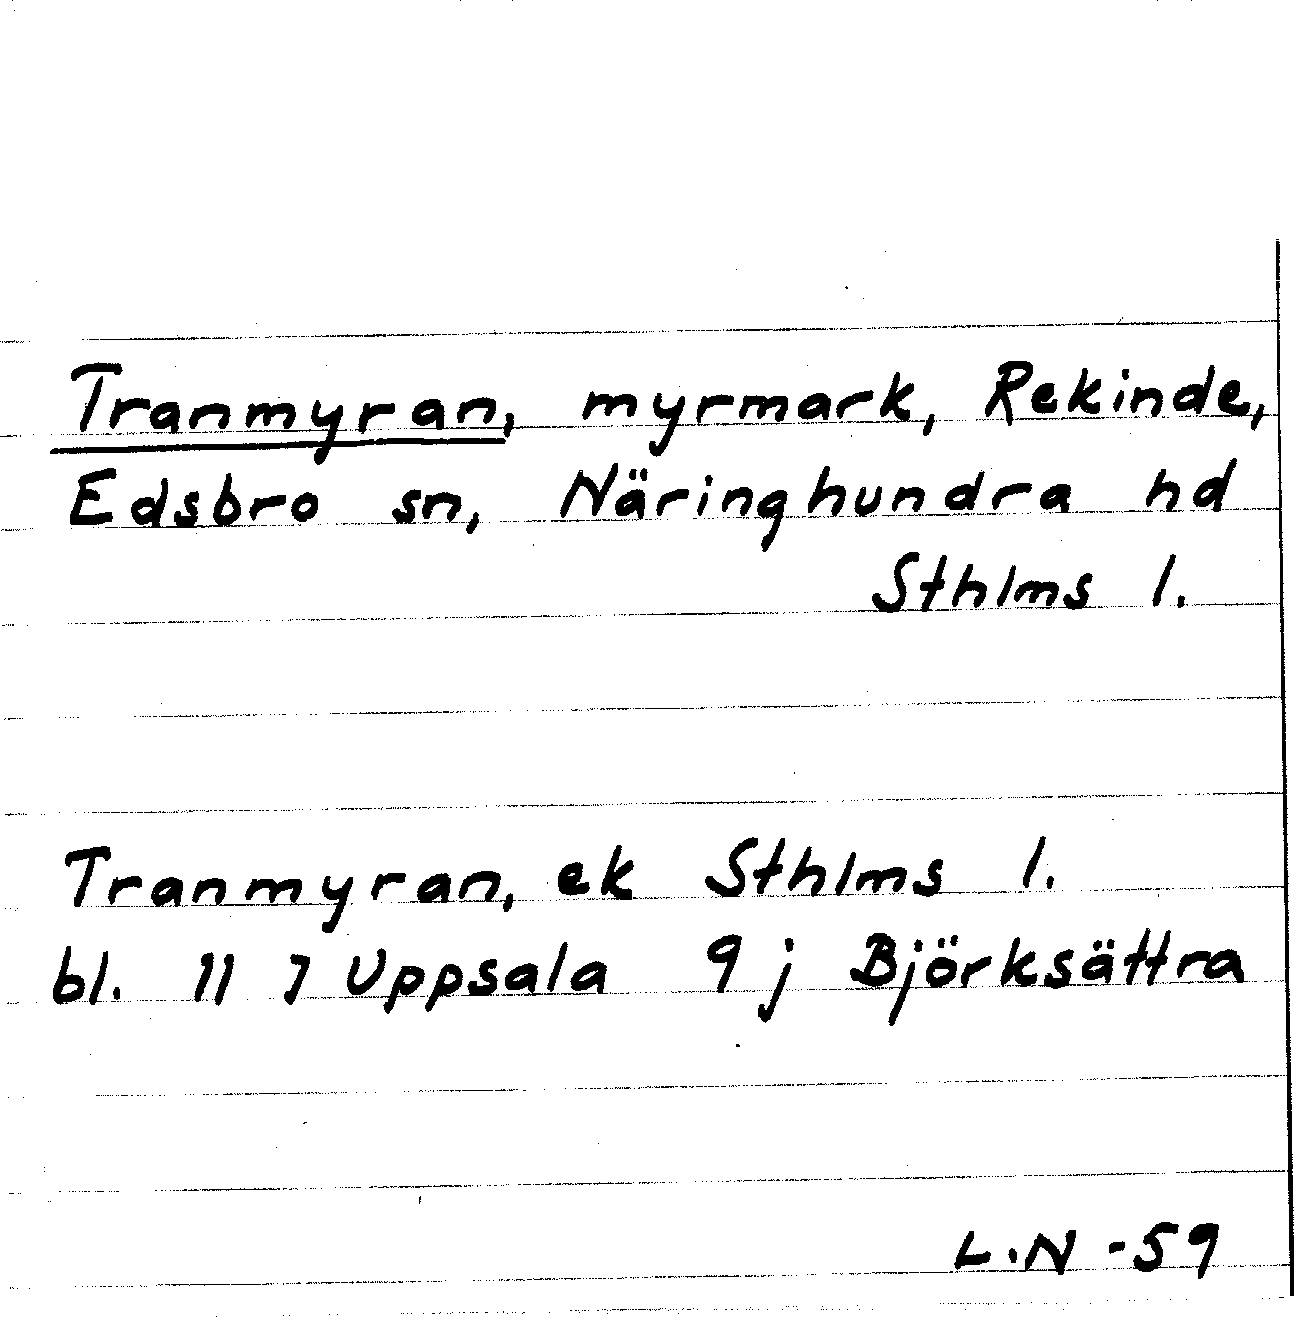 Tranmyran, myrmark, Rekinde,
Edsbro sn, Näringhundra hd
Sthlms l.
Tranmyran, ek Sthlms l.
bl. 11 J Uppsala 9 j Björksättra
L.N -59